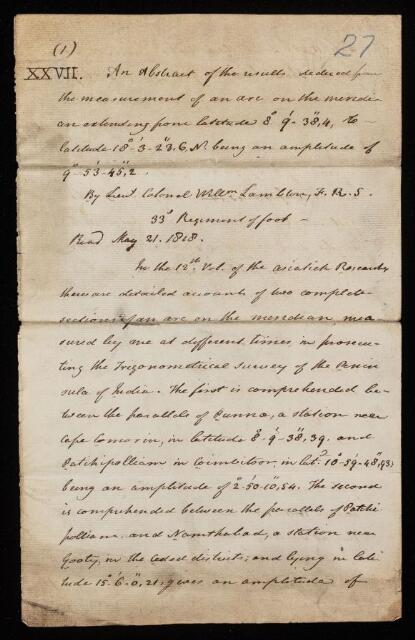 (1)
27
XXVII. An Abstract of the results deduced from
the measurement of an arc on the meridi-
an extending from latitude 8° 9' 38",4, to
latitude 18° 3' 23",6 N. being an amplitude of
9° 53' 45",2.
By Lieut. Colonel Willm Lambton, F. R. S.
33d Regiment of foot -
Read May 21. 1818.
In the 12th Vol. of the asiatick Researches
there are detailed accounts of two complete
sections of an arc on the meridian, mea-
sured by me at different times, in prosecu-
ting the Trigonometrical Survey of the Penin
sula of India. The first is comprehended be-
tween the parallels of Punnæ, a station near
Cape Comorin, in latitude 8° 9' 38",39. and
Patchipolliam in Coimbitoor, in lat. 10° 59' 48",93;
being an amplitude of 2° 50' 10",54. The second
is comprehended between the parallels of Patchi
polliam and Namthabad, a station near
Gooty, in the ceded districts; and lying in lati
tude 15° 6' 0",21; gives an amplitude of